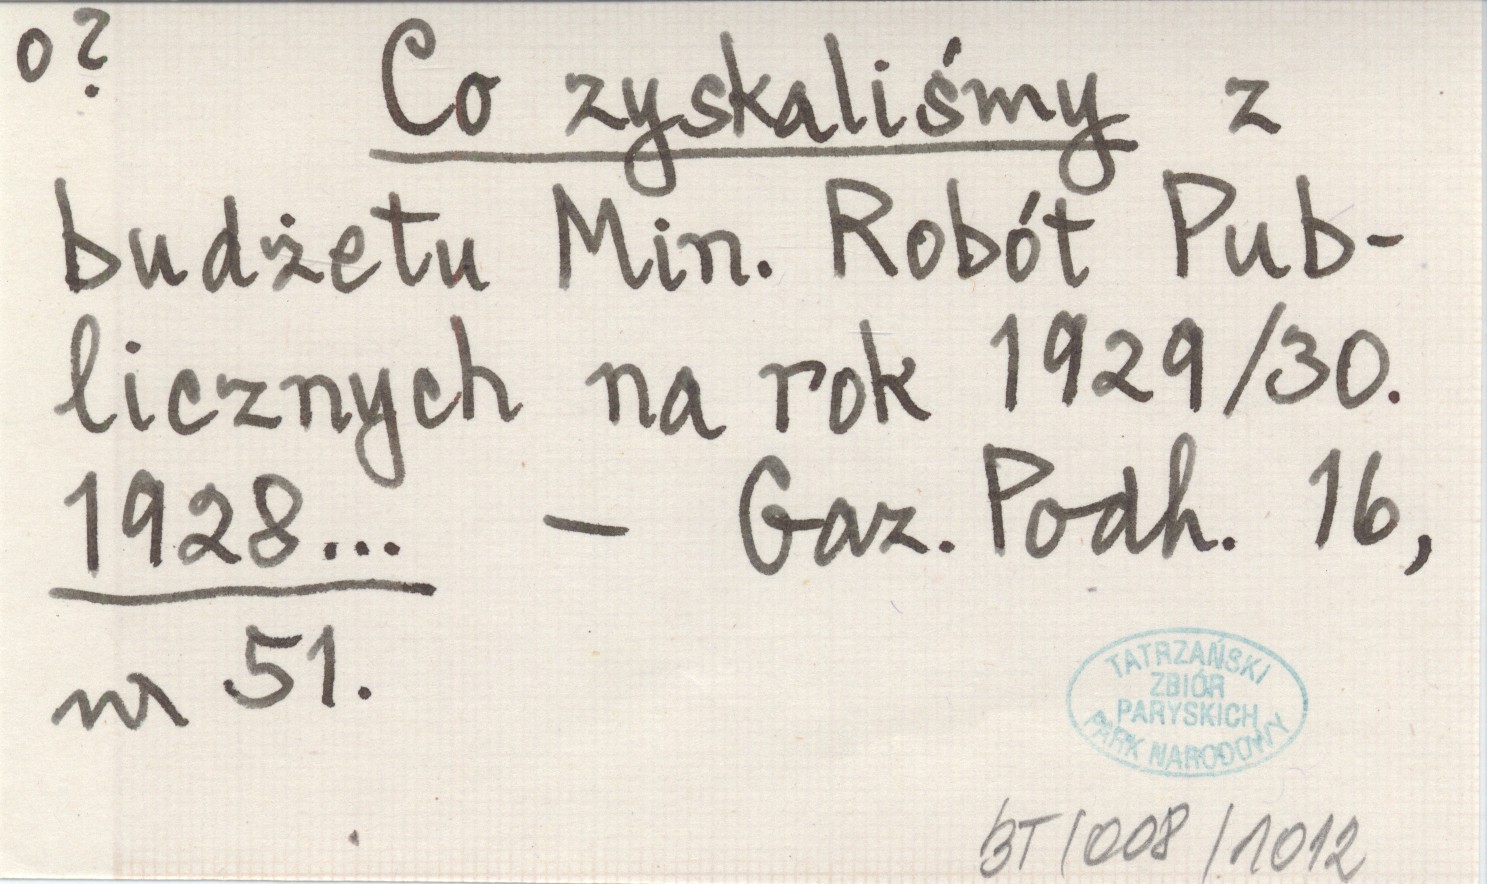 o?
Co zyskaliśmy z
budżetu Min. Robót Pub-
licznych na rok 1929/30.
1928... – Gaz. Podh. 16,
nr 51.
TATRZAŃSKI
ZBIÓR
PARYSKICH
PARK NARODOWY
BT/008/1012